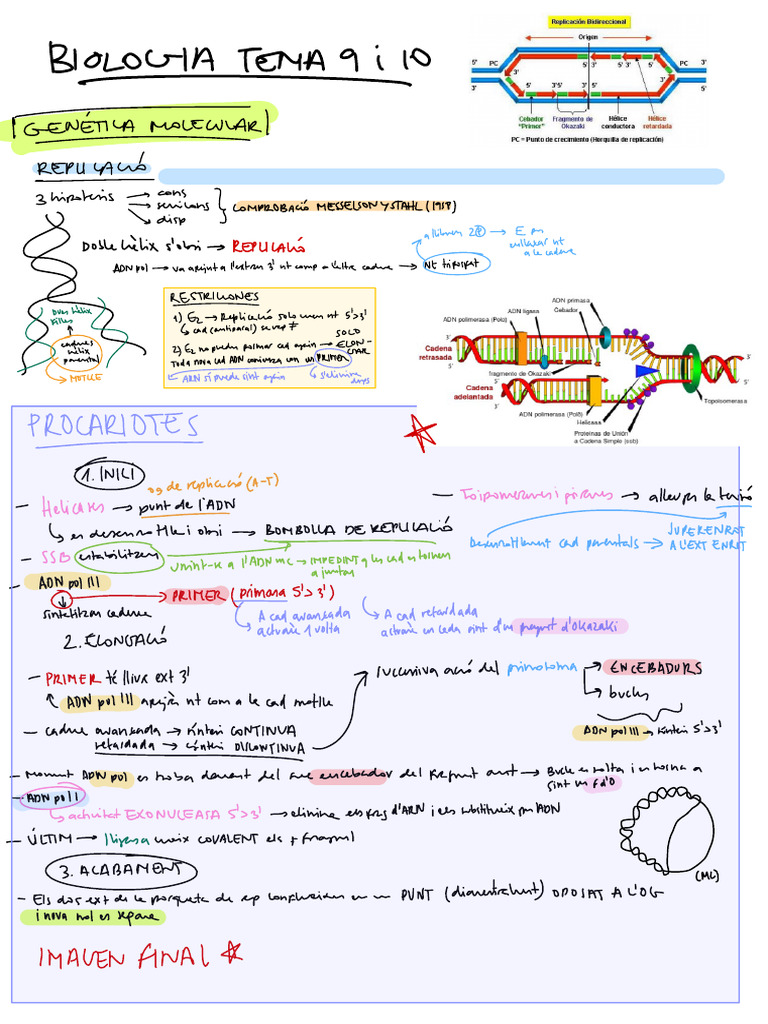 BIOLOGIA TEMA 9 i 10
Replicación Bidireccional
Origen
5' PC 5' 3' 3' 5' PC 3'
3' 5'
3' 5' 3'5' 5' 3' 5'
Cebador "Primor"
Fragmento de Okazaki
Hélice conductora
Hélice retardada
PC = Punto de crecimiento (Horquilla de replicación)
GENÉTICA MOLECULAR
REPLICACIÓ
3 hipotesis → cons
→ semicons
→ disp
COMPROBACIÓ MESSELSON Y STAHL (1958)
Doble hèlix s'obri → REPLICACIÓ
allibera 2 P → E per
enllaçar nt
a la cadena
ADN pol → va afegint a l'extrem 3' nt comp a l'altra cadena → nt trifosfat
Dues hèlix
filles
cadenes
hèlix
parental
→ MOTLLE
RESTRICCIONS
1) Ez → Replicació solo uneix nt 5'>3'
2) Ez no pueden polimer cad → SOLO ELONGAR
Toda nova cad ADN comienza con un PRIMER
ARN si puede sint
s'elimina
ADN polimerasa (Polα)
ADN ligasa
ADN primasa
Cebador
3'
5'
Cadena retrasada
fragmento de Okazaki
Cadena adelantada
5'
3'
ADN polimerasa (Polδ)
Helicasa
Proteínas de Unión a Cadena Simple (ssb)
Topoisomerasa
PROCARIOTES
1. INICI
og de replicació (A-T)
— Helicases → punt de l'ADN
↳ es desenrotlle i obri → BOMBOLLA DE REPLICACIÓ
— SSB estabilitzen
unint-se a l'ADN mc → IMPEDINT q les cad es tornen
a juntar
— ADN pol III
sintetitzen cadena
→ PRIMER (primasa 5'>3')
↳ A cad avançada
actua 1 volta
↳ A cad retardada
actua en cada sint d'un fragment d'Okazaki
— Toipomerases i girases → alleugen la tensió
Desenrotllament cad parentals → SUPERENROT
A L'EXT ENROT
2. ELONGACIÓ
— PRIMER té lliure ext 3'
ADN pol III afegix nt com a la cad motlle
— cadena avançada → síntesi CONTINUA
retardada → síntesi DISCONTINUA
successiva acció del primosoma → ENCEBADORS
→ bucles
ADN pol III → síntesi 5'>3'
— Moment ADN pol es troba davant del encebador del fragment ant → Bucle es solta i es torna a
sint un f d'O
— ADN pol I
↳ activitat EXONUCLEASA 5'>3' → elimina els frag d'ARN i els substitueix per ADN
— ÚLTIM → lligasa uneix COVALENT els ≠ fragment
3. ACABAMENT
(MC)
— Els dos ext de la forqueta de rep conflueixen en un PUNT (diametralment) OPOSAT A L'OG
i nova mol es separa
IMAGEN FINAL ☆